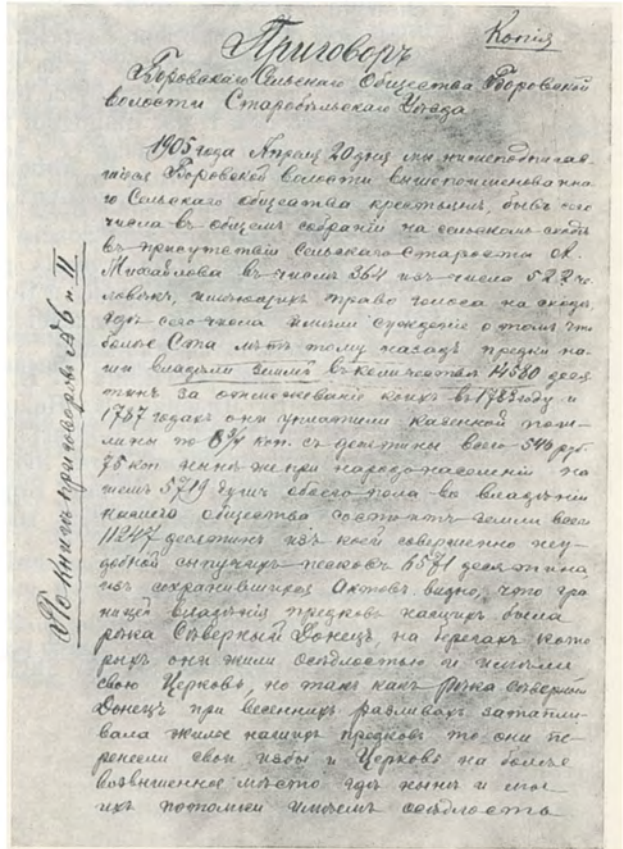 Копія
Приговоръ
Боровскаго Сельскаго Общества Боровской
волости Старобѣльскаго Уѣзда
1905 года Апреля 20 дня мы нижеподписав-
шіеся Боровской волости вышепоименованна-
го Сельскаго общества крестьяне, бывъ сего
числа въ общемъ собраніи на сельскомъ сходѣ
въ присутствіи Сельскаго Старосты А.
Михайлова въ числѣ 364 изъ числа 522 че-
ловѣкъ, имѣющихъ право голоса на сходѣ,
гдѣ сего числа имѣли сужденіе о томъ что
более Ста лѣтъ тому назадъ предки на-
ши владѣли землей въ количествѣ 14580 деся-
тинъ за отмежеваніе коихъ въ 1783 году и
1787 годахъ они уплатили казенной пош-
лины по 3¾ коп. съ десятины всего 546 руб.
75 коп нынѣ же при народонаселеніи на
шемъ 5719 душъ обоего пола во владѣніи
нашего общества состоитъ земли всего
11247 десятинъ изъ коей совершенно неу-
добной сыпучихъ песковъ 6571 десятина,
изъ сохранившихся Актовъ видно, что гра
ницей владѣнія предковъ нашихъ была
рѣка Сѣверный Донецъ, на берегахъ кото
рыхъ они жили осѣдлостью и имѣли
свою Церковь, но такъ какъ рѣка Сѣверный
Донецъ при весеннихъ разливахъ затапли-
вала жилье нашихъ предковъ то они пе-
ренесли свои избы и Церковь на более
возвышенное мѣсто гдѣ нынѣ и мы
ихъ потомки имѣемъ осѣдлость
По книгѣ приговоровъ № 6 п. 11